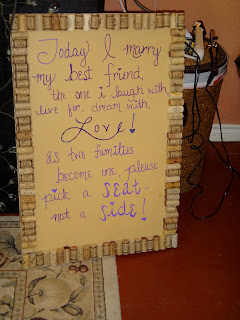 Today I marry
my best friend,
the one i laugh with
live for, dream with,
Love!
as two families
become one, please
pick a SEAT-
not a SIDE!